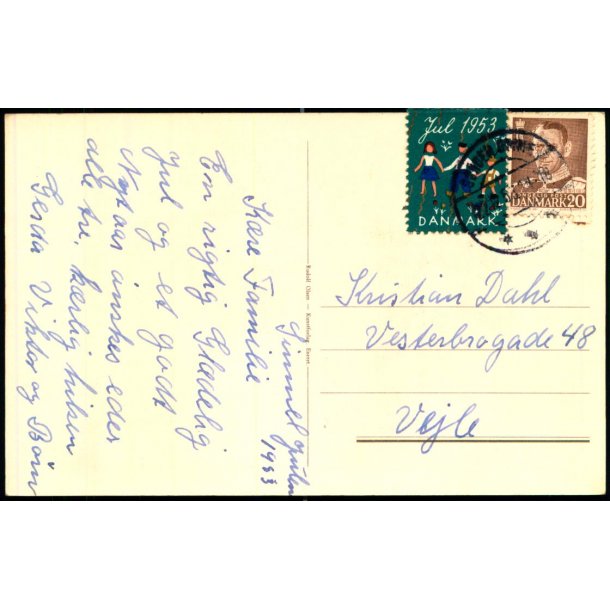 Gimmel Julen
1953
Kære Familie
En rigtig Glædelig
Jul og et godt
Nytaar ønskes eder
alle tre, kærlig hilsen
Gerda Viktor og Børn
Rudolf Olsen - Kunstforlag, Eneret
Jul 1953
DANMARK
DANMARK 20
Kristian Dahl
Vesterbrogade 48
Vejle